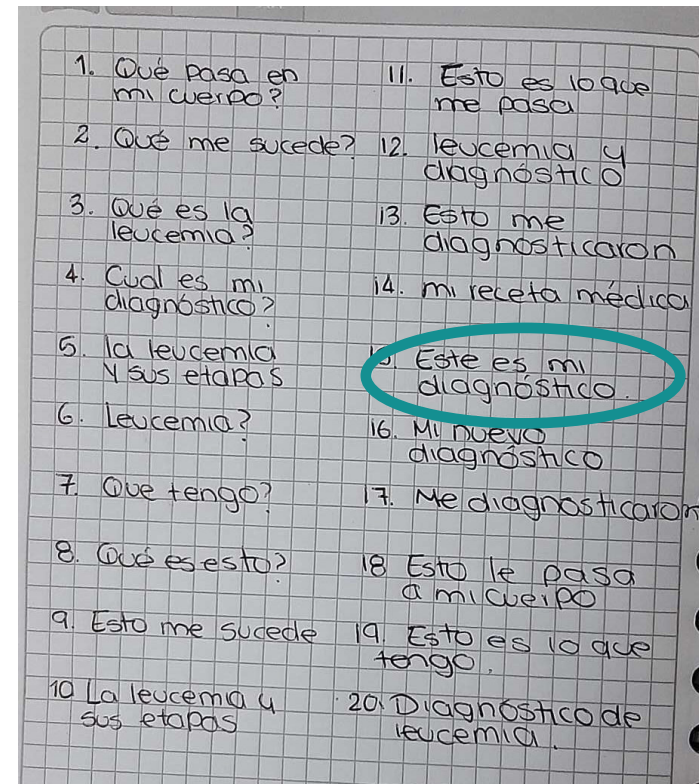 1. Qué pasa en
mi cuerpo?
2. Qué me sucede?
3. Qué es la
leucemia?
4. Cual es mi
diagnóstico?
5. la leucemia
y sus etapas
6. Leucemia?
7. Que tengo?
8. Qué es esto?
9. Esto me sucede
10 La leucemia y
sus etapas
11. Esto es lo que
me pasa
12. leucemia y
diagnóstico
13. Esto me
diagnosticaron
14. mi receta médica
15. Este es mi
diagnóstico.
16. Mi nuevo
diagnóstico
17. Me diagnosticaron
18 Esto le pasa
a mi cuerpo
19. Esto es lo que
tengo.
20. Diagnostico de
leucemia.